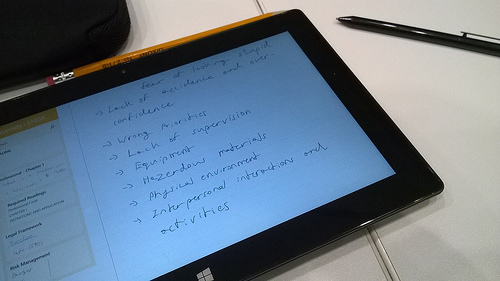 fear of looking stupid
→ Lack of accidence and over-
confidence
→ Wrong Priorities
→ Lack of supervision
→ Equipment
→ Hazardous materials
→ Physical environment
→ Interpersonal interactions and
activities
Required Readings
Legal Framework
Risk Management